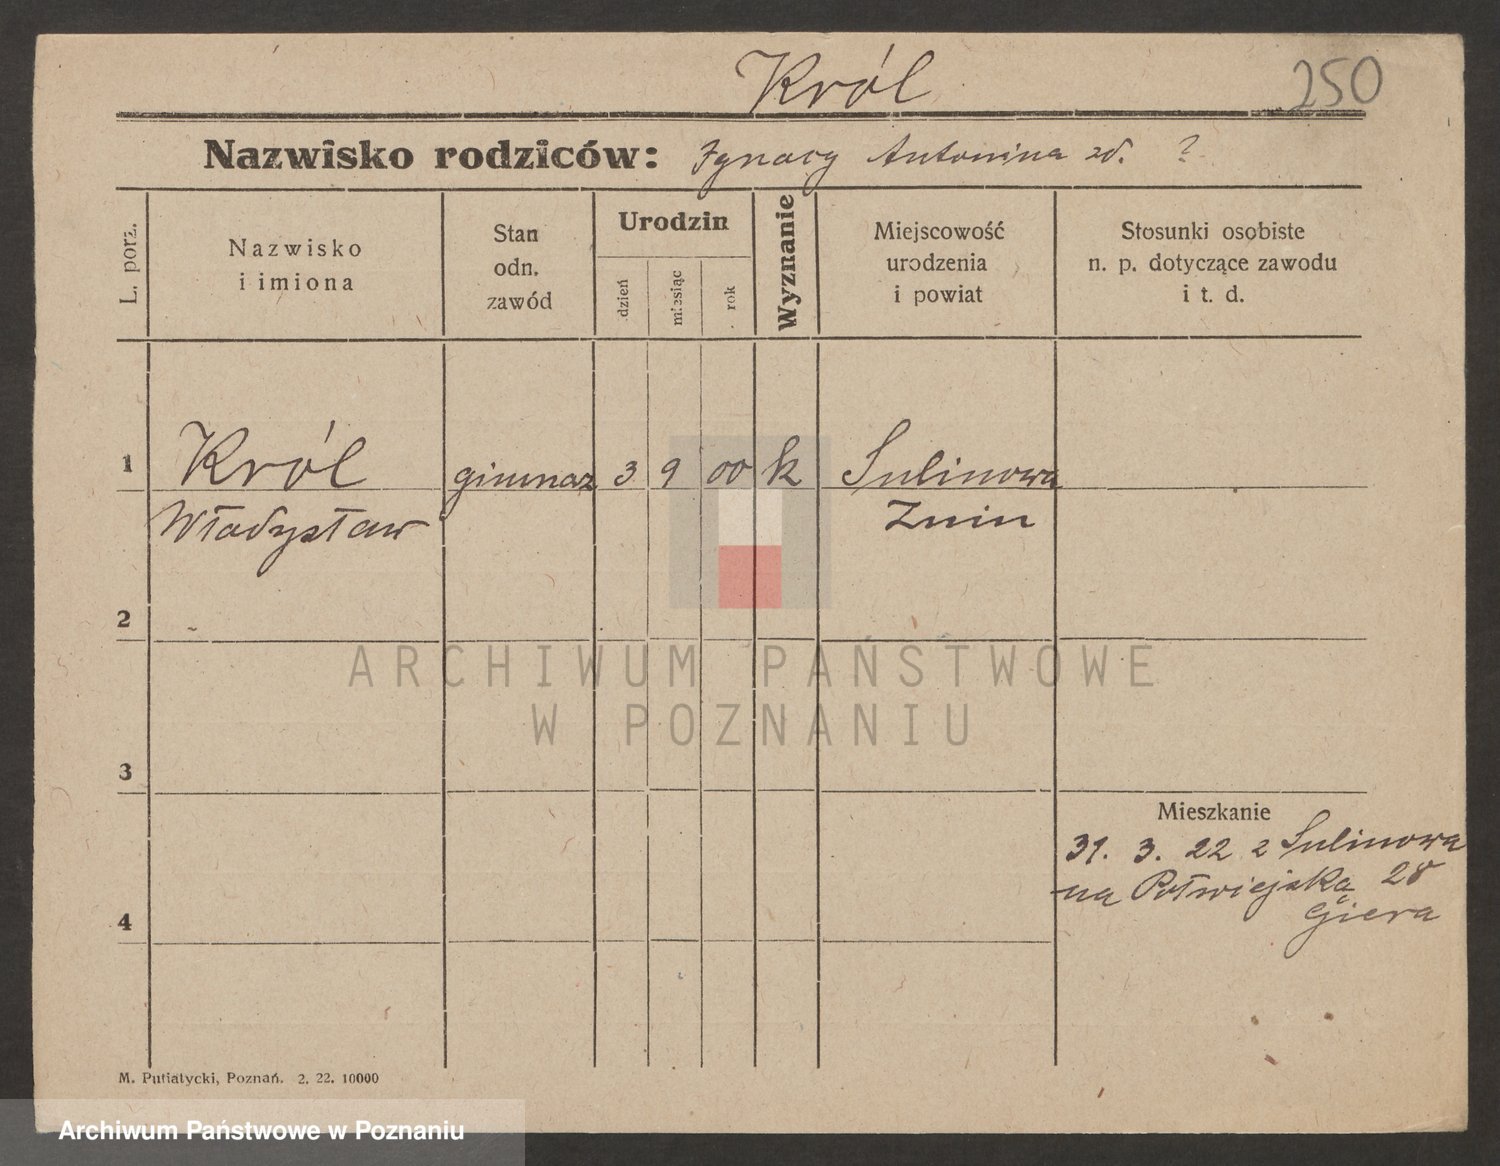 Król 250
Nazwisko rodziców: Ignacy Antonina zd. ?
L. porz.
Nazwisko
i imiona
Stan
odn.
zawód
Urodzin
dzień
miesiąc
rok
Wyznanie
Miejscowość
urodzenia
i powiat
Stosunki osobiste
n. p. dotyczące zawodu
i t. d.
1 Król gimnaz 3 9 00 k Sulinowa
Władysław Znin
2
ARCHIWUM PAŃSTWOWE
W POZNANIU
3
Mieszkanie
31. 3. 22 z Sulinowa
na Półwiejską 28
Giera
4
M. Putiatycki, Poznań. 2. 22. 10000
Archiwum Państwowe w Poznaniu